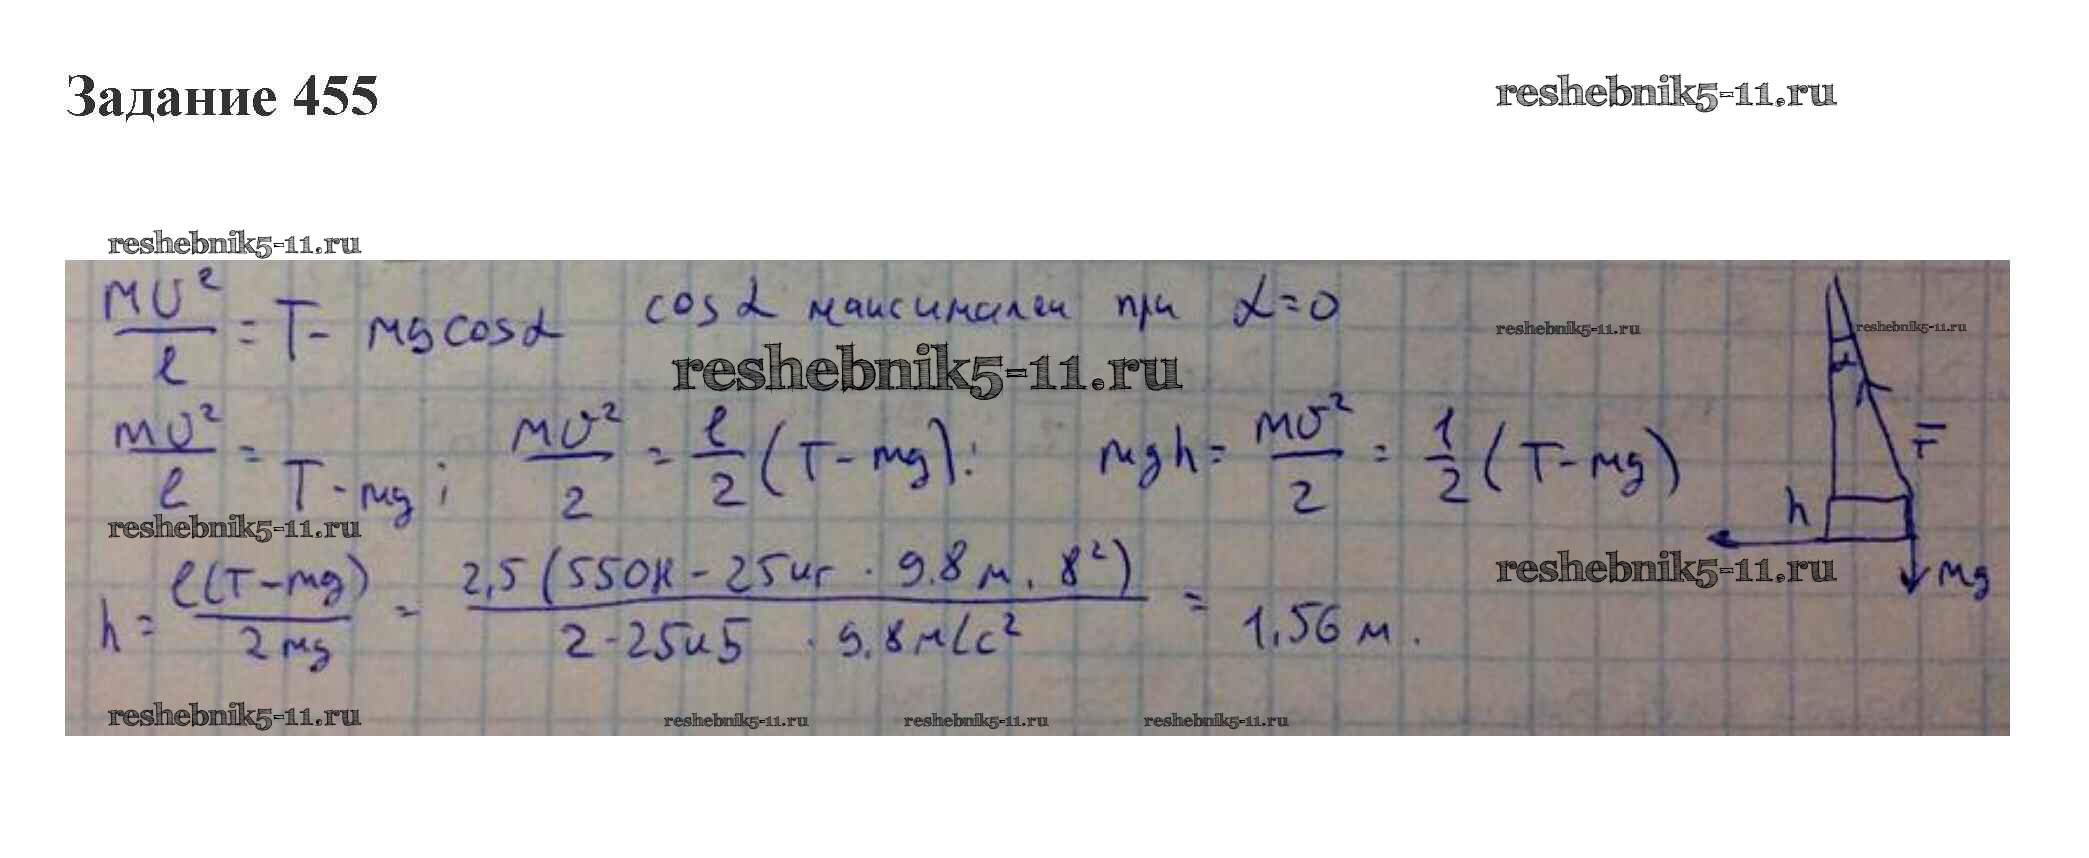 Задание 455
reshebnik5-11.ru
reshebnik5-11.ru
mv²/l = T - mg cosα cosα максимален при α=0
reshebnik5-11.ru
reshebnik5-11.ru
reshebnik5-11.ru
α
mv²/l = T - mg; mv²/2 = l/2 (T - mg); mgh = mv²/2 = 1/2 (T - mg)
T
h
reshebnik5-11.ru
reshebnik5-11.ru
mg
h = l(T - mg)/2mg = 2,5 (550н - 25кг · 9.8 м. 8²)/2 - 25к5 · 9.8 м/с² = 1,56 м.
reshebnik5-11.ru
reshebnik5-11.ru
reshebnik5-11.ru
reshebnik5-11.ru